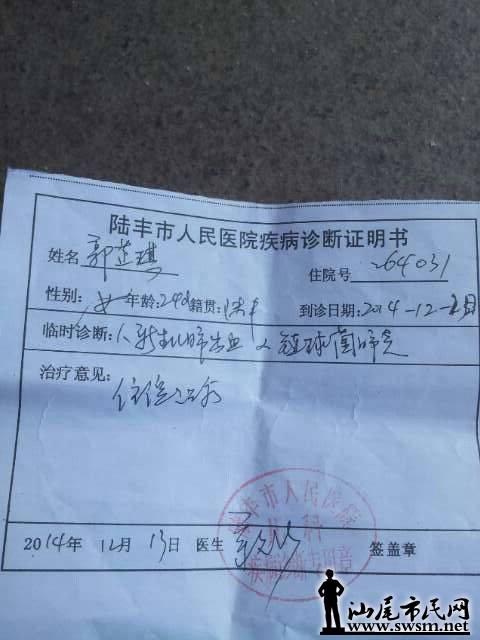 陆丰市人民医院疾病诊断证明书
姓名 郭芷琪 住院号 264031
性别: 女 年龄: 24d 籍贯: 陆丰 到诊日期: 2014-12-
临时诊断: 1.新生儿肺出血 2.链球菌肺炎
治疗意见:
住院治疗
陆丰市人民医院
儿科
疾病诊断专用章
2014年 12月 13日 医生 签盖章
汕尾市民网
www.swsm.net